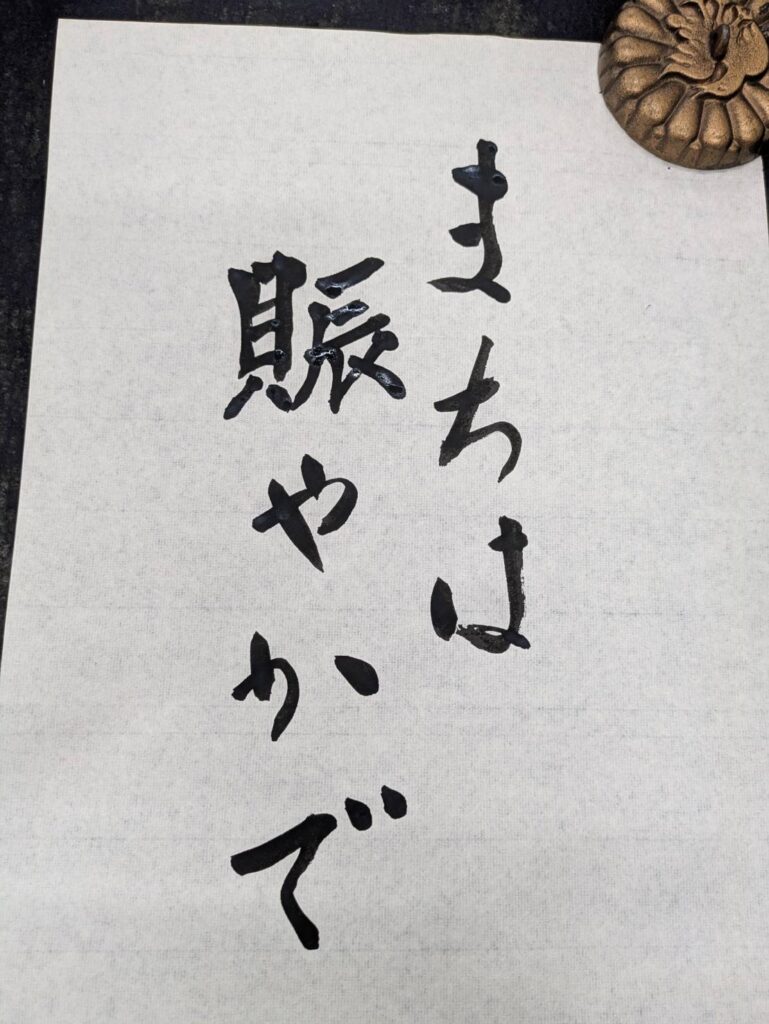 まちは
賑やかで